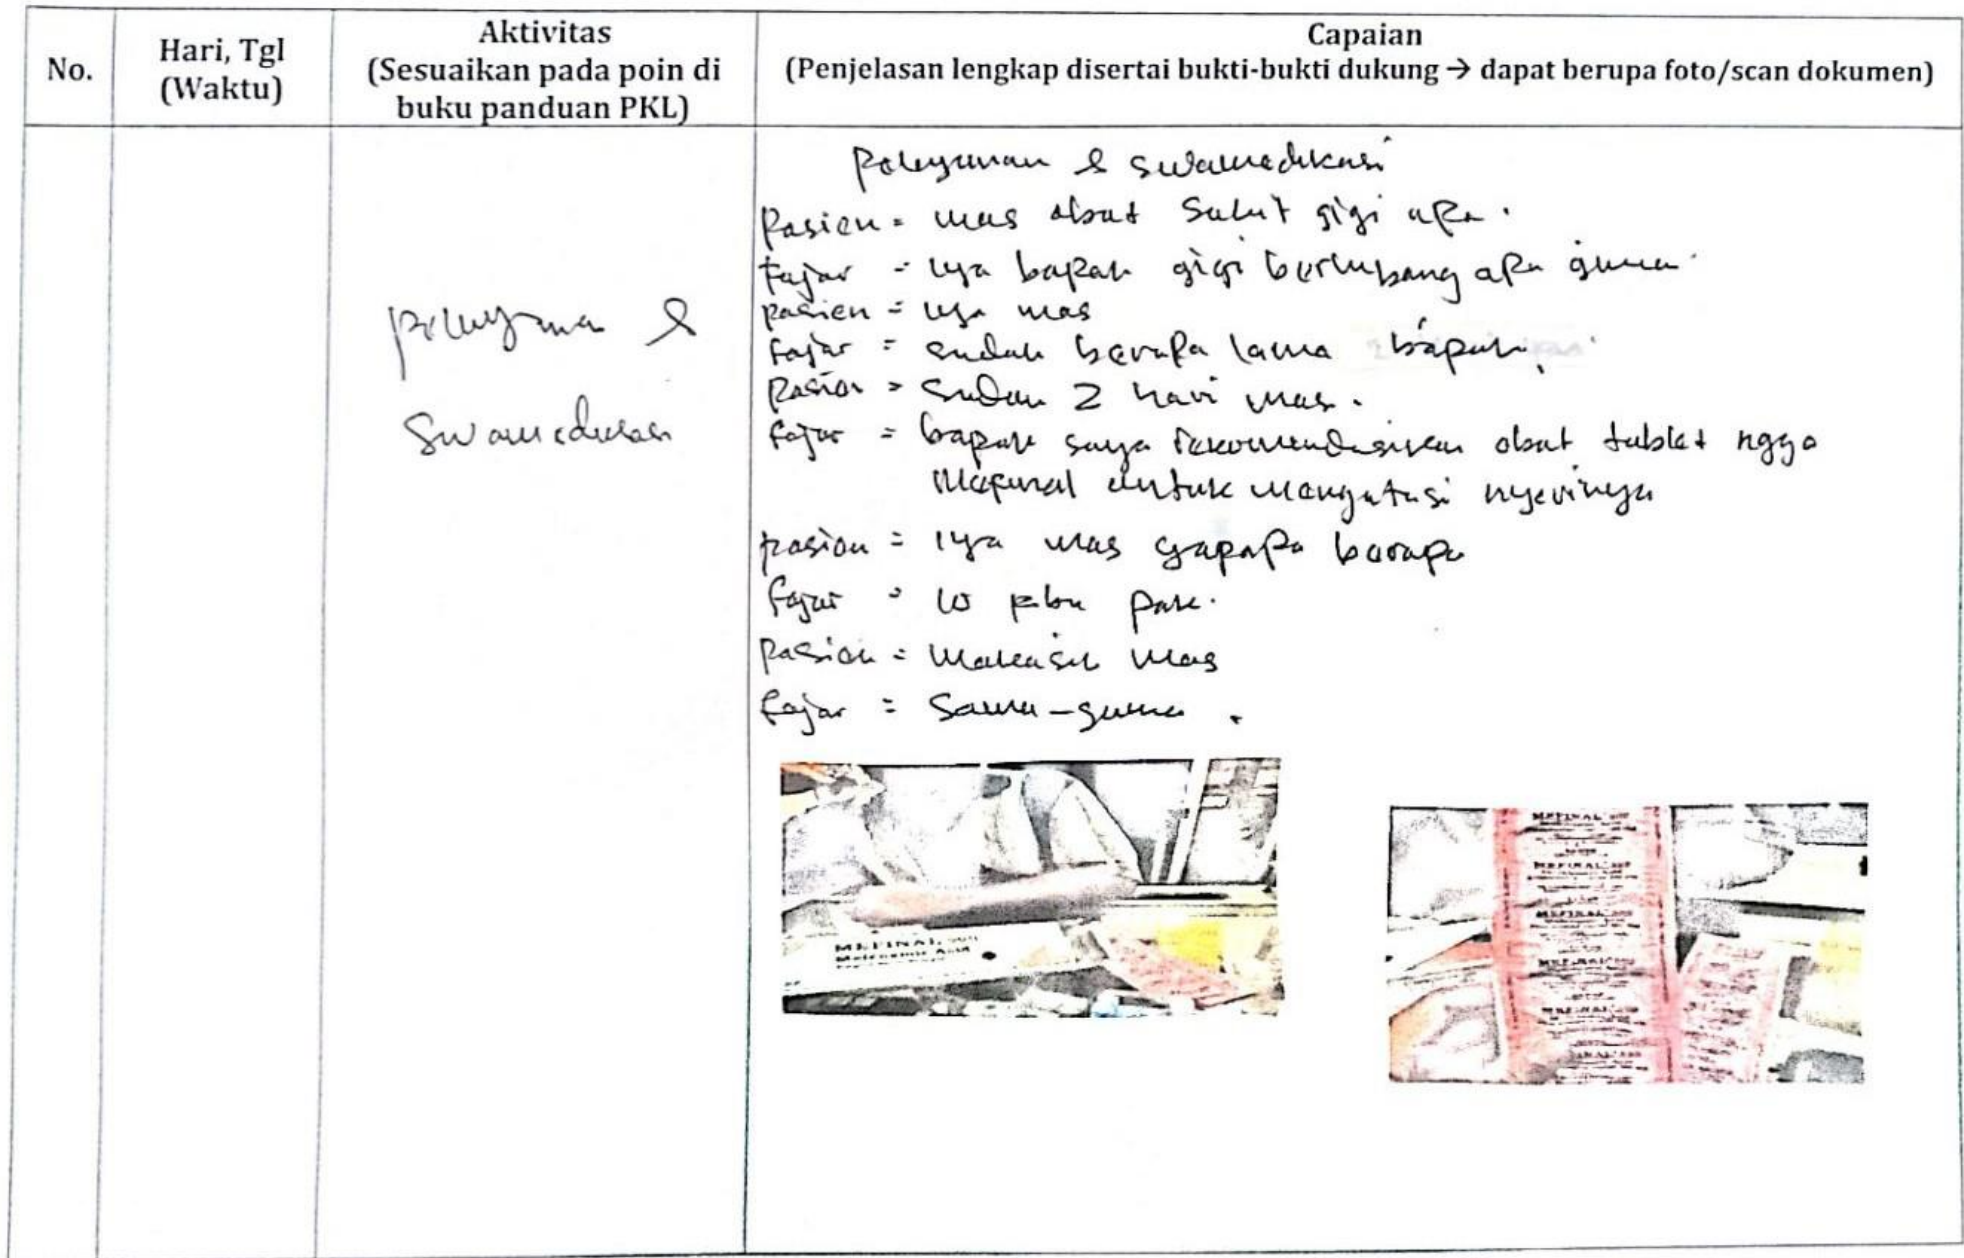 No.
Hari, Tgl
(Waktu)
Aktivitas
(Sesuaikan pada poin di
buku panduan PKL)
Capaian
(Penjelasan lengkap disertai bukti-bukti dukung → dapat berupa foto/scan dokumen)
Pelayanan &
Swamedikasi
Pelayanan & swamedikasi
Pasien = mas obat Sakit gigi apa.
Fajar = iya bapak gigi berlubang apa
pasien = iya mas
Fajar = sudah berapa lama bapak.
Pasien = Sudah 2 hari mas.
Fajar = bapak saya rekomendasikan obat tablet nggo
Mefinal untuk mengatasi nyerinya
pasien = iya mas gapapa berapa
Fajar = 10 ribu pak.
Pasien = Makasih Mas
Fajar = Sama-sama.
MEFINAL 500
Mefenamic Acid
MEFINAL 500
MEFINAL 500
MEFINAL 500
MEFINAL 500
MEFINAL 500